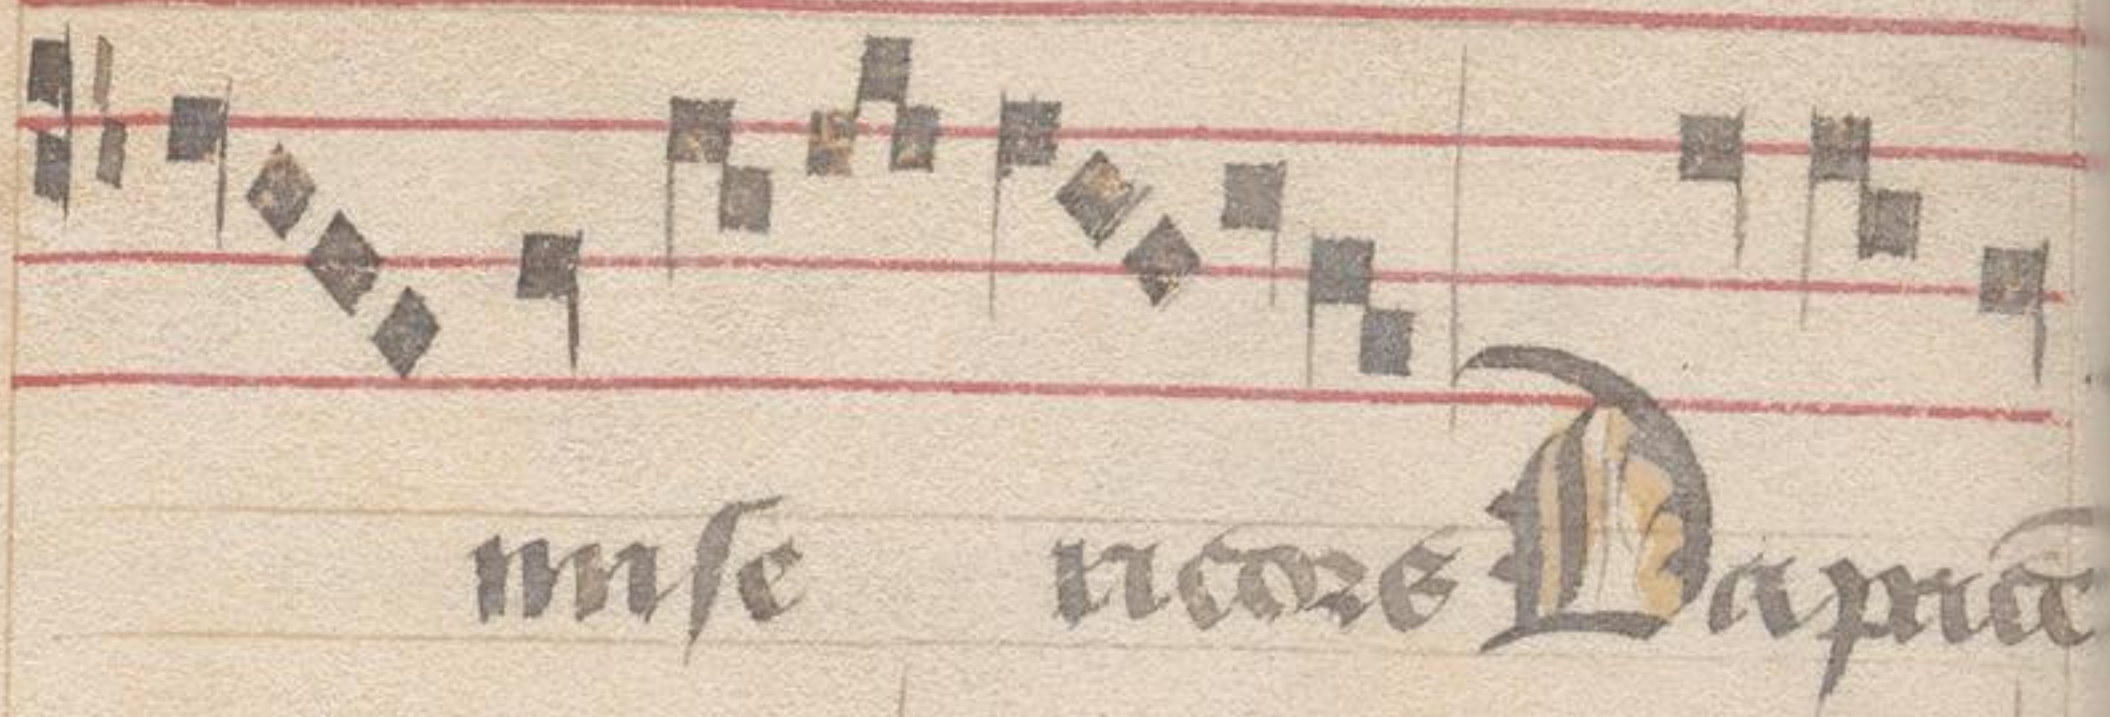 mise ricors Da pacē